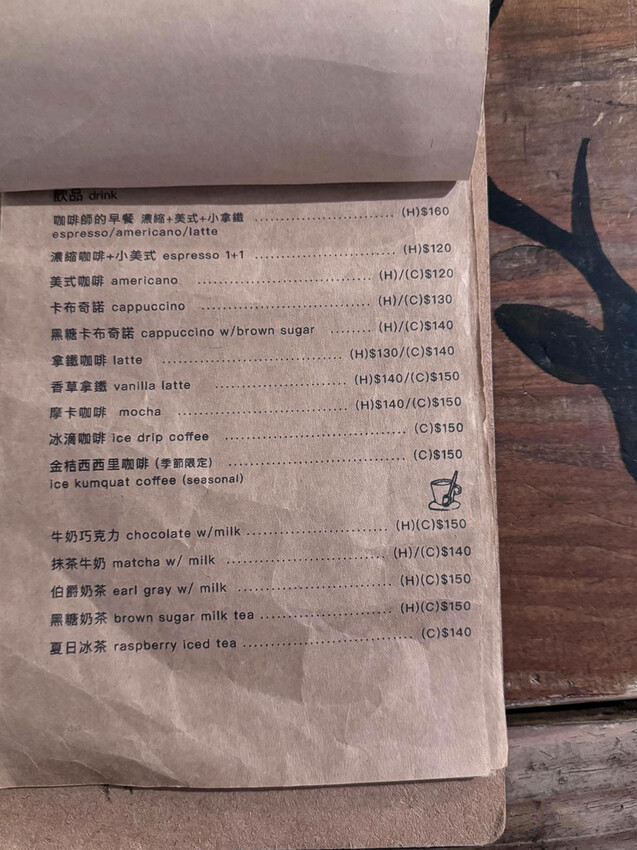 飲品 drink
咖啡師的早餐 濃縮+美式+小拿鐵 ........................ (H)$160
espresso/americano/latte
濃縮咖啡+小美式 espresso 1+1 ........................ (H)$120
美式咖啡 americano ........................ (H)/(C)$120
卡布奇諾 cappuccino ........................ (H)/(C)$130
黑糖卡布奇諾 cappuccino w/brown sugar ....... (H)/(C)$140
拿鐵咖啡 latte ........................ (H)$130/(C)$140
香草拿鐵 vanilla latte ........................ (H)$140/(C)$150
摩卡咖啡 mocha ........................ (H)$140/(C)$150
冰滴咖啡 ice drip coffee ........................ (C)$150
金桔西西里咖啡 (季節限定) ........................ (C)$150
ice kumquat coffee (seasonal)
牛奶巧克力 chocolate w/milk ........................ (H)(C)$150
抹茶牛奶 matcha w/ milk ........................ (H)/(C)$140
伯爵奶茶 earl gray w/ milk ........................ (H)(C)$150
黑糖奶茶 brown sugar milk tea ........................ (H)(C)$150
夏日冰茶 raspberry iced tea ........................ (C)$140